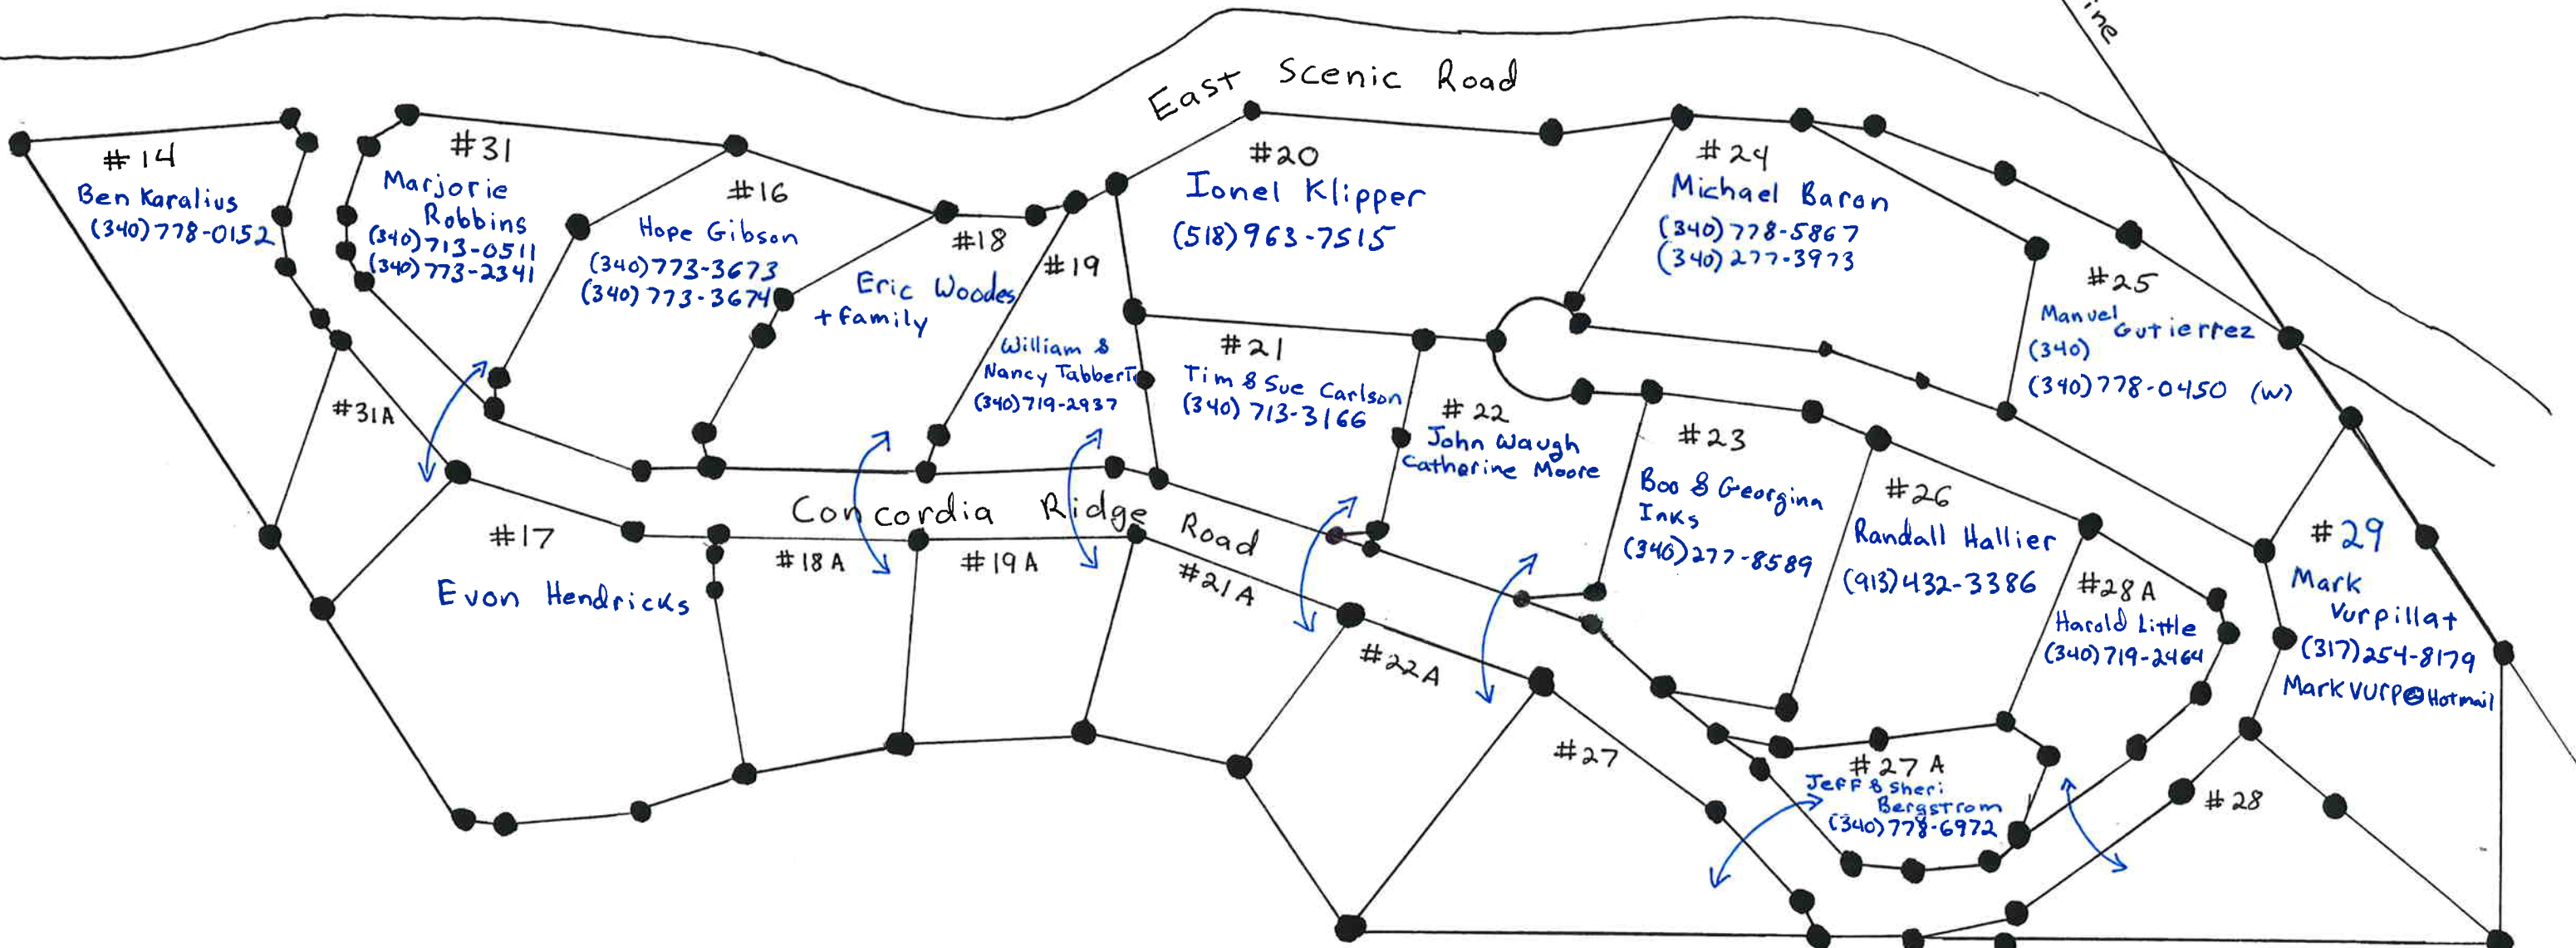 ine
East Scenic Road
#14
Ben Karalius
(340)778-0152
#31
Marjorie
Robbins
(340)713-0511
(340)773-2341
#16
Hope Gibson
(340)773-3673
(340)773-3674
#18
Eric Woodes
+ family
#19
William &
Nancy Tabbert
(340)719-2937
#20
Ionel Klipper
(518)963-7515
#24
Michael Baron
(340)778-5867
(340)277-3973
#25
Manuel
Gutierrez
(340)
(340)778-0450 (w)
#21
Tim & Sue Carlson
(340)713-3166
#22
John Waugh
Catherine Moore
#23
Boo & Georgina
Inks
(340)277-8589
#26
Randall Hallier
(913)432-3386
#28A
Harold Little
(340)719-2464
#29
Mark
Vurpillat
(317)254-8179
Markvurp@Hotmail
#31A
Concordia Ridge Road
#17
Evon Hendricks
#18A
#19A
#21A
#22A
#27
#27A
Jeff & Sheri
Bergstrom
(340)778-6972
#28